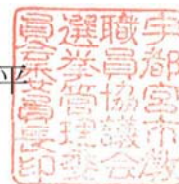 平
宇都宮市教
職員協議会
選挙管理委
員会委員長印